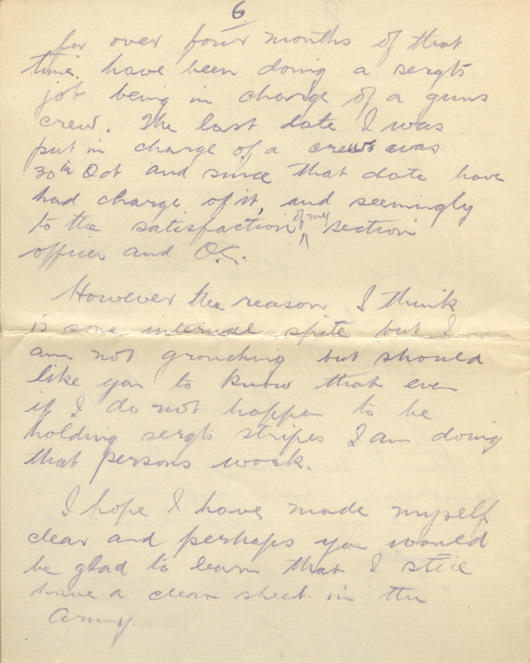 6
for over four months of that
time. have been doing a sergts
job being in charge of a guns
crew. The last date I was
put in charge of a crews was
30th Oct and since that date have
had charge of it, and seemingly
to the satisfaction of my section
officer and O.C.
However the reason I think
is some internal spite but I
am not grouching but should
like you to know that even
if I do not happen to be
holding sergts stripes I am doing
that persons work.
I hope I have made myself
clear and perhaps you would
be glad to learn that I still
have a clean sheet in the
Army.